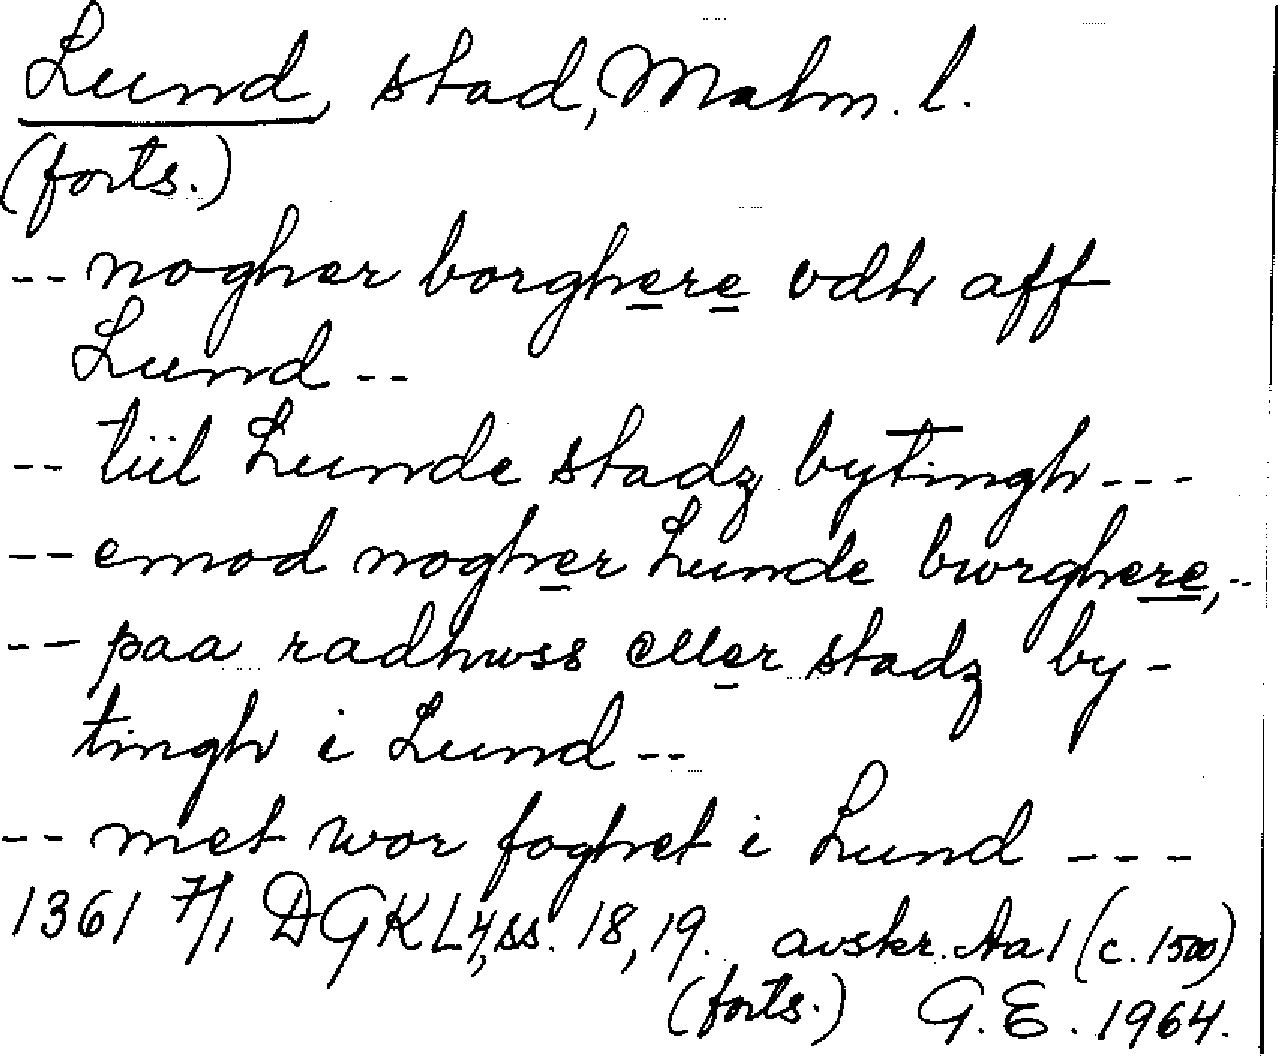 Lund, stad, Malm. l.
(forts.)
-- nogher borghere vdh aff
Lund --
-- tiil Lunde stadz bytingh ---
-- emod nogher Lunde bwrghere, --
-- paa radhwss eller stadz by-
tingh i Lund --
-- met wor foghet i Lund ---
1361 7/1 DGKL 4, ss. 18, 19. avskr. Aa 1 (c. 1500)
(forts.) G.E. 1964.